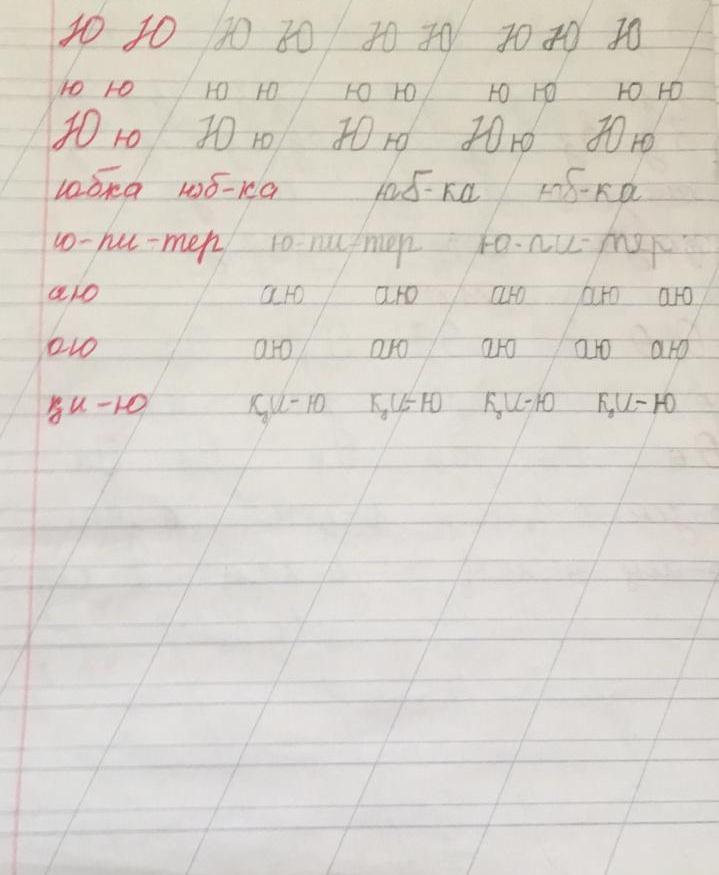 Ю Ю Ю Ю Ю Ю Ю Ю Ю
ю ю ю ю ю ю ю ю ю ю
Ю ю Ю ю Ю ю Ю ю Ю ю
юбка юб-ка юб-ка юб-ка
ю-пи-тер ю-пи-тер ю-пи-тер
аю аю аю аю аю аю
ою аю аю аю аю аю
қи-ю қи-ю қи-ю қи-ю қи-ю